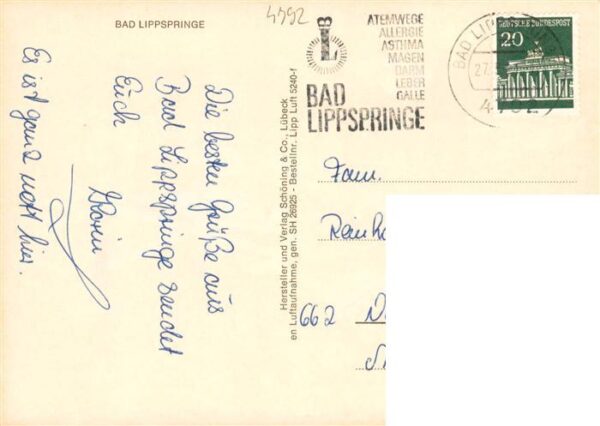 BAD LIPPSPRINGE
4992
ATEMWEGE
ALLERGIE
ASTHMA
MAGEN
DARM
LEBER
GALLE
BAD
LIPPSPRINGE
DEUTSCHE BUNDESPOST
20
BAD LIPP
27.
Die besten Grüße aus
Bad Lippspringe sendet
Euch
Karin
Es ist ganz nett hier.
Hersteller und Verlag Schöning & Co., Lübeck
en Luftaufnahme, gen. SH 26925 - Bestellnr. Lipp Luft 5240-f
Fam.
Reinh
662